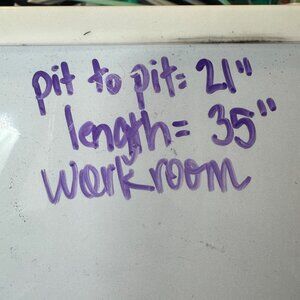 pit to pit: 21"
length = 35"
workroom